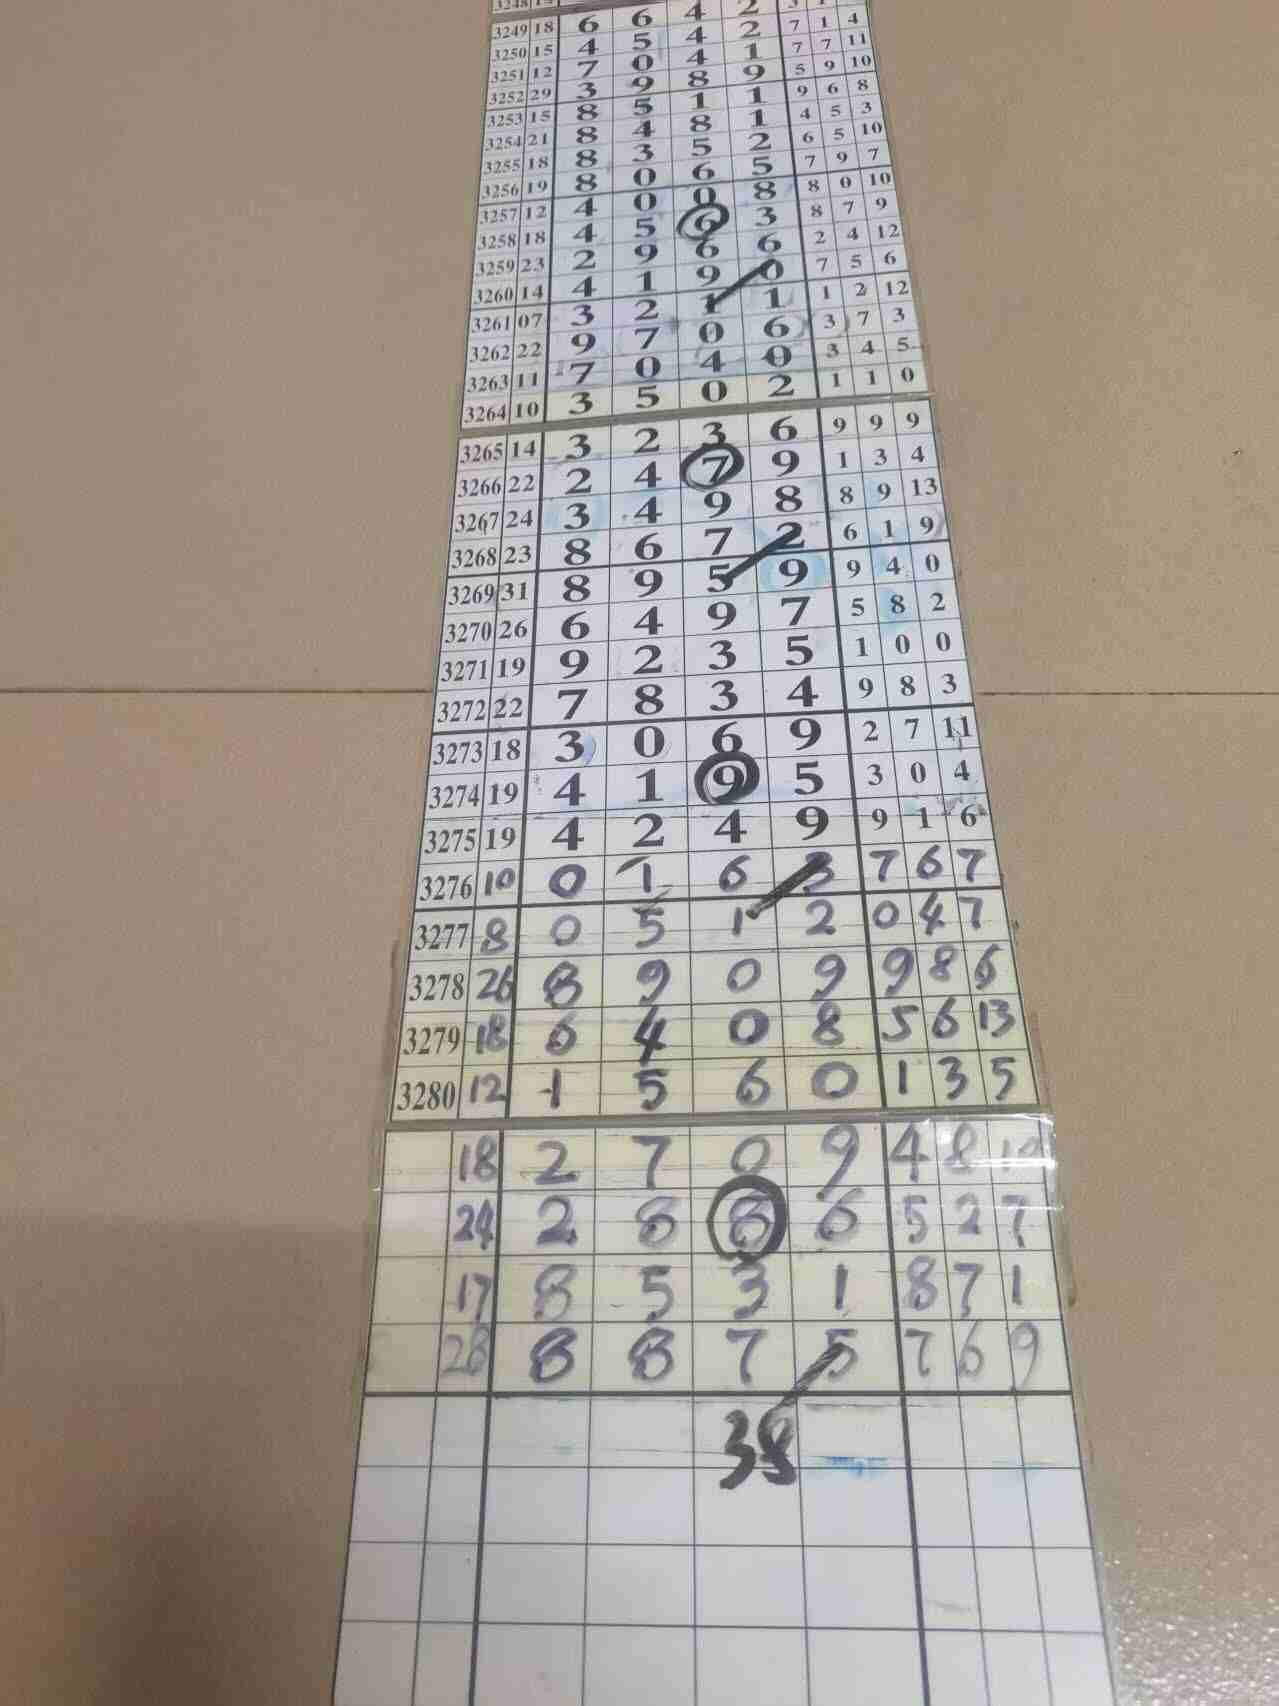 3249 18 6 6 4 2
3250 15 4 5 4 2 7 1 4
3251 12 7 0 4 1 7 7 11
3252 29 3 9 8 9 5 9 10
3253 15 8 5 1 1 9 6 8
3254 21 8 4 8 1 4 5 3
3255 18 8 3 5 2 6 5 10
3256 19 8 0 6 5 7 9 7
3257 12 4 0 0 8 8 0 10
3258 18 4 5 6 3 8 7 9
3259 23 2 9 6 6 2 4 12
3260 14 4 1 9 0 7 5 6
3261 07 3 2 1 1 1 2 12
3262 22 9 7 0 6 3 7 3
3263 11 7 0 4 0 3 4 5
3264 10 3 5 0 2 1 1 0
3265 14 3 2 3 6 9 9 9
3266 22 2 4 7 9 1 3 4
3267 24 3 4 9 8 8 9 13
3268 23 8 6 7 2 6 1 9
3269 31 8 9 5 9 9 4 0
3270 26 6 4 9 7 5 8 2
3271 19 9 2 3 5 1 0 0
3272 22 7 8 3 4 9 8 3
3273 18 3 0 6 9 2 7 11
3274 19 4 1 9 5 3 0 4
3275 19 4 2 4 9 9 1 6
3276 10 0 1 6 3 7 6 7
3277 8 0 5 1 2 0 4 7
3278 26 8 9 0 9 9 8 6
3279 18 6 4 0 8 5 6 13
3280 12 1 5 6 0 1 3 5
18 2 7 0 9 4 8
24 2 8 8 6 5 2 7
17 8 5 3 1 8 7 1
28 8 8 7 5 7 6 9
38